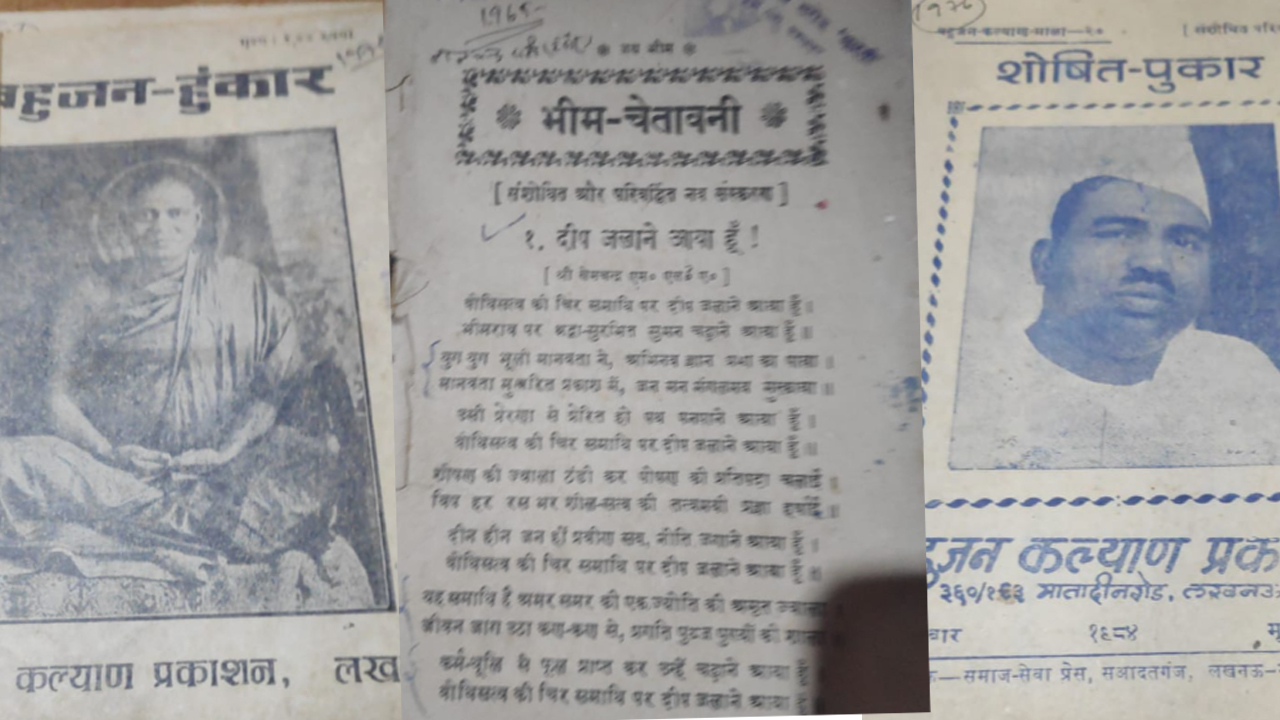 बहुजन-हुंकार
कल्याण प्रकाशन, लख
1965
* जय भीम *
भीम-चेतावनी
[ संशोधित और परिवर्द्धित नव संस्करण ]
१. दीप जलाने आया हूँ !
[ श्री खेमचन्द्र एम० एल० ए० ]
बोधिसत्व की चिर समाधि पर दीप जलाने आया हूँ ॥
भीमराव पर श्रद्धा-सुरभित सुमन चढ़ाने आया हूँ ॥
युग युग भूली मानवता ने, अभिनव ज्ञान प्रभा का पाया ॥
मानवता मुखरित प्रकाश में, जन मन मंगलमय मुस्काया ॥
उसी प्रेरणा से प्रेरित हो पथ आया हूँ ॥
बोधिसत्व की चिर समाधि पर दीप जलाने आया हूँ ॥
शोषण की ज्वाला ठंडी कर पोषण की
विष हर रस भर शील-सत्व की
दीन हीन जन हों प्रवीण सब, नीति जगाने आया हूँ ॥
बोधिसत्व की चिर समाधि पर दीप जलाने आया हूँ ॥
यह समाधि है अमर समर की एक ज्योति की अमृत ज्वाला
जीवन जाग उठा कण-कण से, प्रगति पुञ्ज पुष्पों की
कर्म-धूलि से फूल प्राप्त कर उन्हें चढ़ाने आया हूँ
बोधिसत्व की चिर समाधि पर दीप जलाने आया हूँ
बहुजन-कल्याण-माला—२०
[ संशोधित परि
शोषित-पुकार
हुजन कल्याण प्रक
३६०/१६३ मातादीन रोड, लखनऊ
बार १९८४ मू
—समाज-सेवा प्रेस, सआदतगंज, लखनऊ-